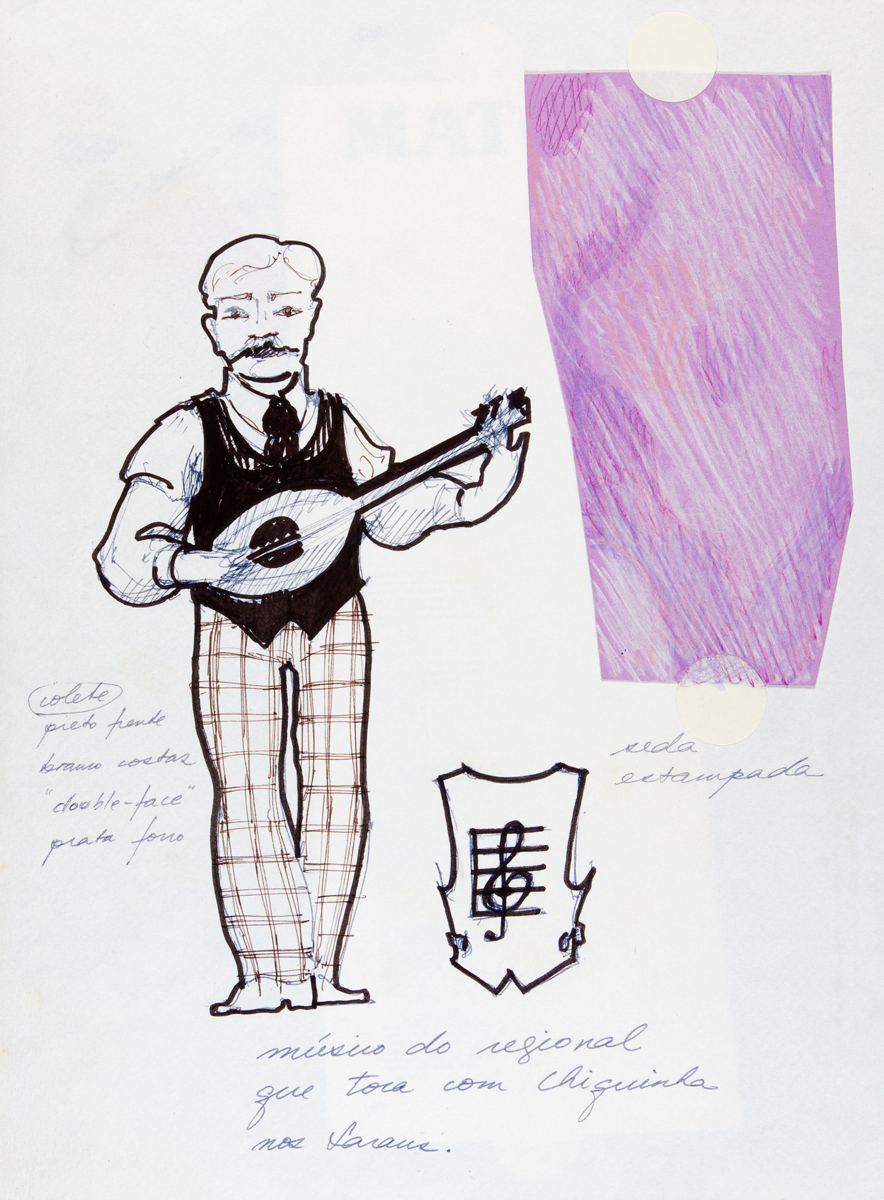 colete
preto frente
branco costas
"double-face"
prata forro
seda
estampada
músico do regional
que toca com Chiquinha
nos Saraus.